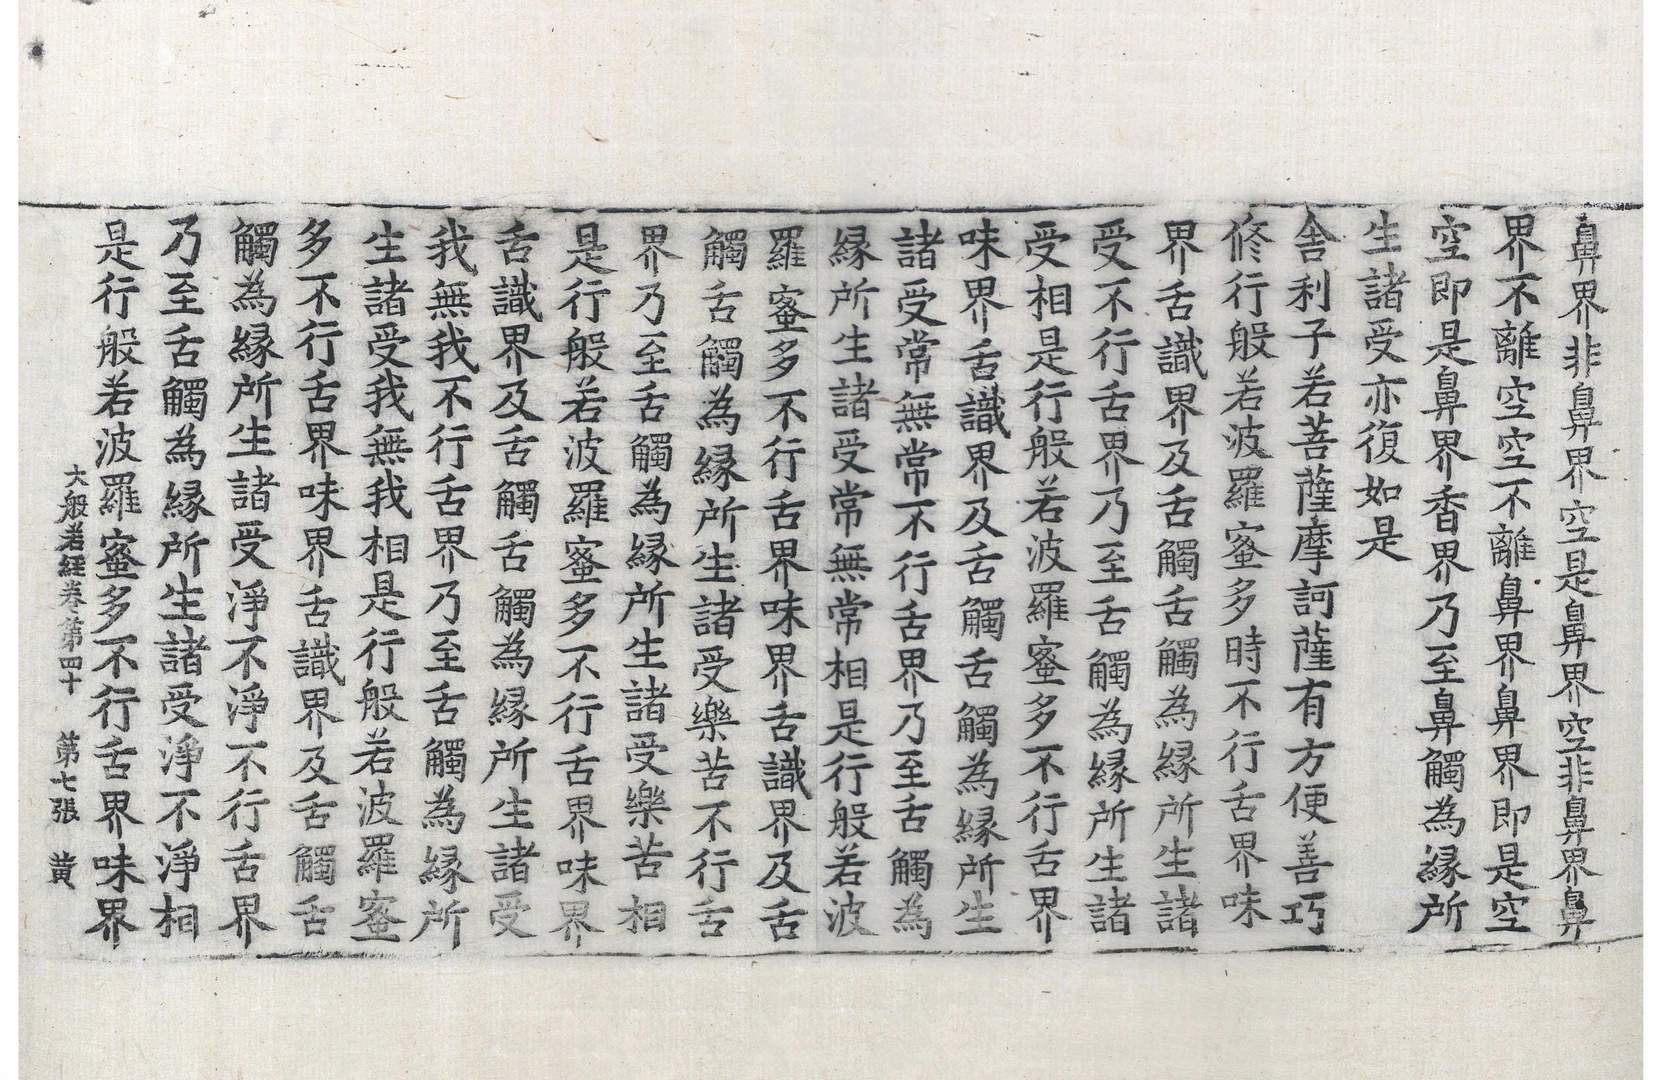 鼻界非鼻界空是鼻界空非鼻界鼻
界不離空空不離鼻界鼻界即是空
空即是鼻界香界乃至鼻觸為縁所
生諸受亦復如是
舍利子若菩薩摩訶薩有方便善巧
修行般若波羅蜜多時不行舌界味
界舌識界及舌觸舌觸為縁所生諸
受不行舌界乃至舌觸為縁所生諸
受相是行般若波羅蜜多不行舌界
味界舌識界及舌觸舌觸為縁所生
諸受常無常不行舌界乃至舌觸為
縁所生諸受常無常相是行般若波
羅蜜多不行舌界味界舌識界及舌
觸舌觸為縁所生諸受樂苦不行舌
界乃至舌觸為縁所生諸受樂苦相
是行般若波羅蜜多不行舌界味界
舌識界及舌觸舌觸為縁所生諸受
我無我不行舌界乃至舌觸為縁所
生諸受我無我相是行般若波羅蜜
多不行舌界味界舌識界及舌觸舌
觸為縁所生諸受淨不淨不行舌界
乃至舌觸為縁所生諸受淨不淨相
是行般若波羅蜜多不行舌界味界
大般若經卷第四十 第七張 黃